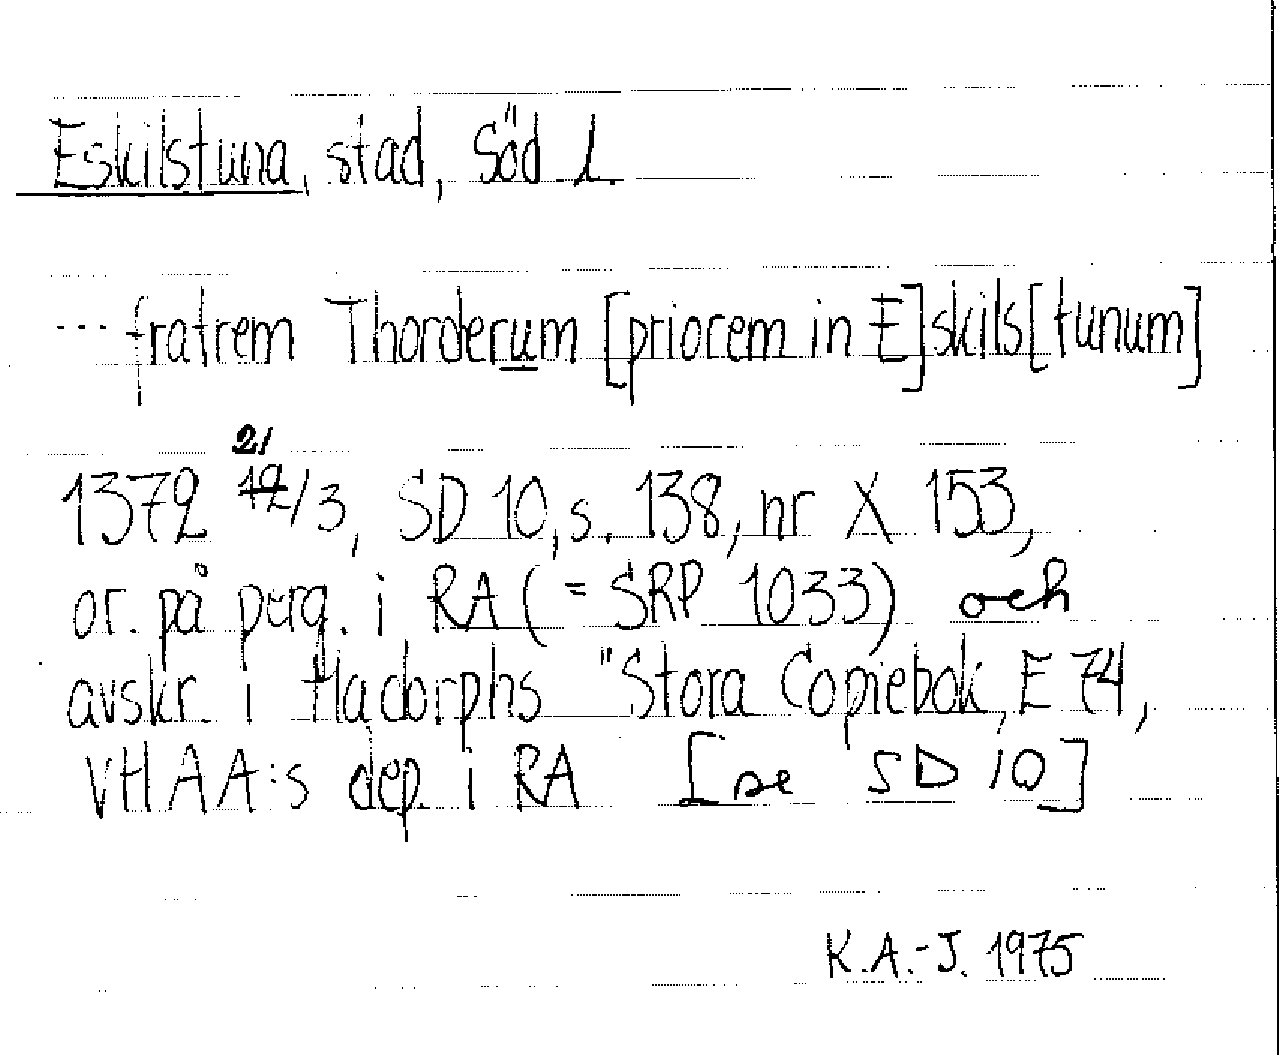 Eskilstuna, stad, Söd l.
... fratrem Thorderum [priorem in E]skils[tunum]
21
1372 12/3, SD 10, s. 138, nr X 153,
or. på perg. i RA (= SRP 1033) och
avskr. i Hadorphs "Stora Copiebok, E 74,
VHAA:s dep. i RA [se SD 10]
K.A.-J. 1975